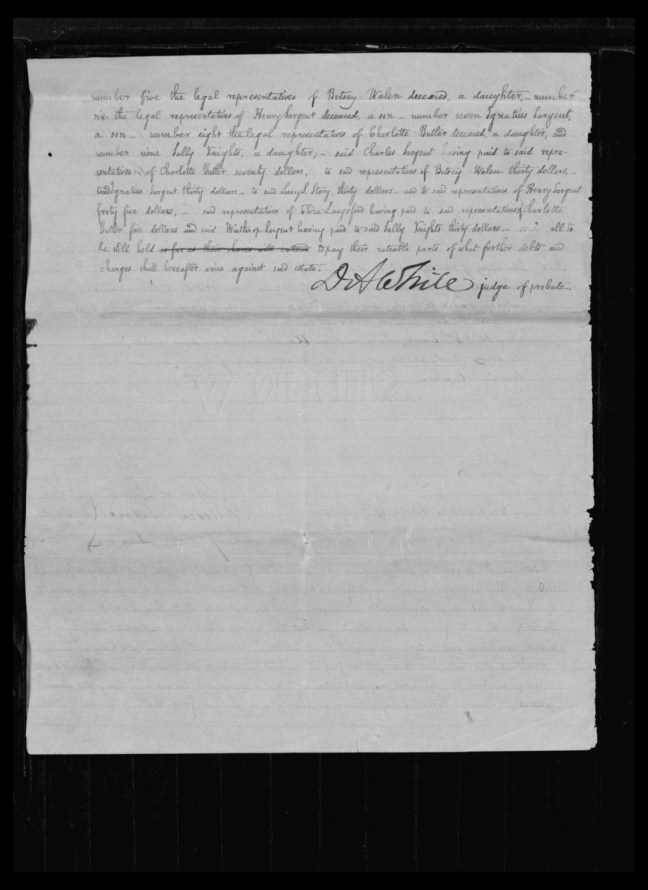 number five the legal representatives of Betsey Walen deceased, a daughter, – number
six the legal representatives of Henry Sargent deceased, a son – number seven Ignatius Sargent,
a son – number eight the legal representatives of Charlotte Butler deceased, a daughter, and
number nine Sally Knights, a daughter; – said Charles Sargent having paid to said repre-
sentatives of Charlotte Butler seventy dollars, to said representatives of Betsey Walen thirty dollars –
to said Ignatius Sargent thirty dollars – to said Story, thirty dollars – and to said representatives of Henry Sargent
forty five dollars, – said representatives of having paid to said representatives of Charlotte
Butler five dollars and said Winthrop Sargent having paid to said Sally Knights thirty dollars – all to
be still held so far as their shares will extend to pay their rateable parts of what further debts and
charges shall hereafter arise against said estate.
D A White judge of probate.